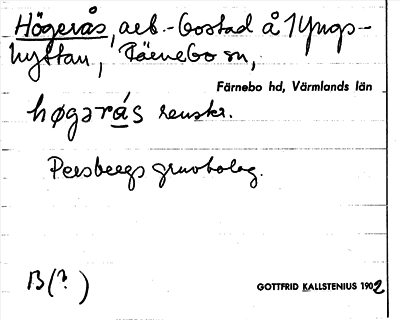 Högerås, arb.-bostad å Yngs-
hyttan, Färnebo sn,
Färnebo hd, Värmlands län
høgərás renskr.
Persbergs gruvbolag.
B(?)
GOTTFRID KALLSTENIUS 1902